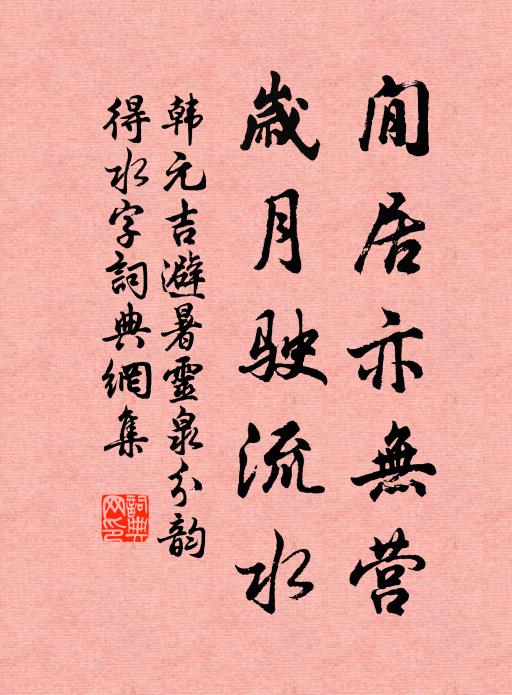 閒居亦無营
歲月駛流水
韩元吉避暑靈泉分韵
得水字詞典網集
詞典
网印